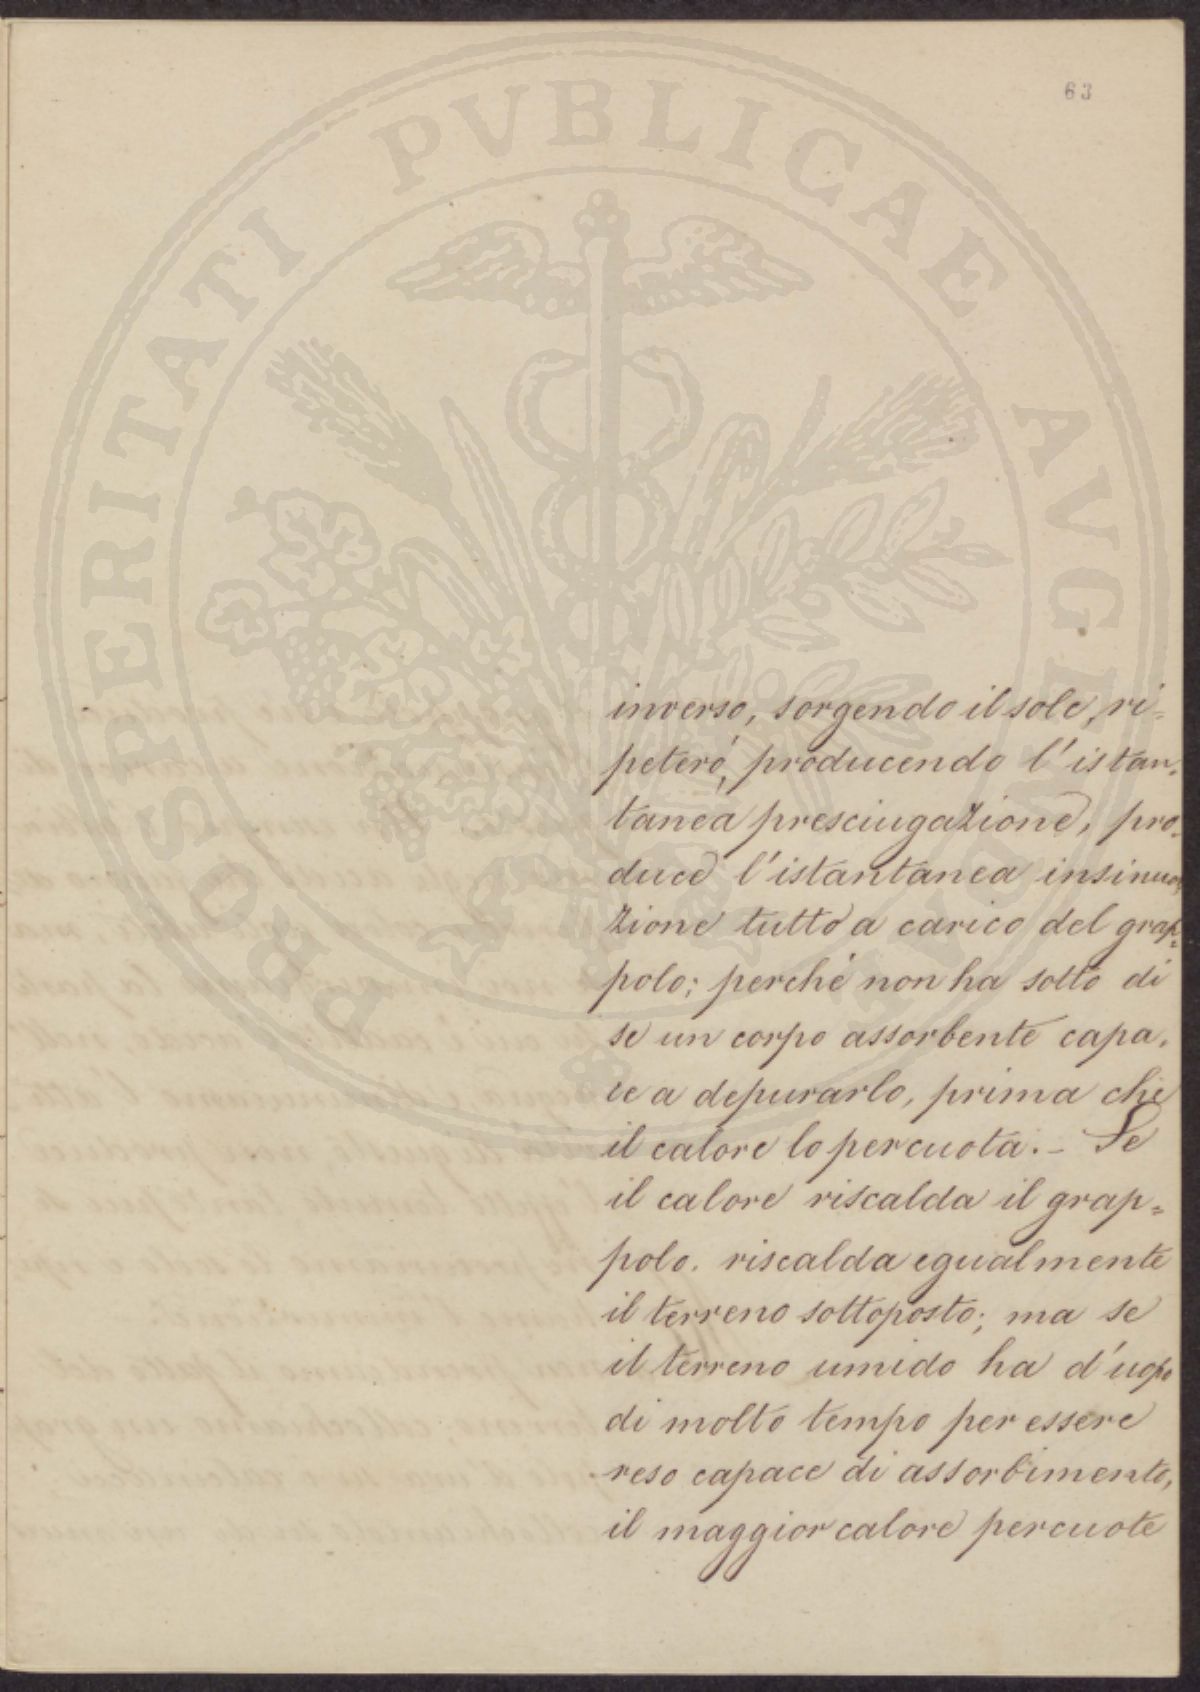 63
PROSPERITATI PVBLICAE AVGENDAE
inverso, sorgendo il sole, ri=
peterò, producendo l'istan=
tanea presciugazione, pro=
duce l'istantanea insinua=
zione tutto a carico del grap=
polo; perché non ha sotto di
se un corpo assorbente capa=
ce a depurarlo, prima che
il calore lo percuota. - Se
il calore riscalda il grap=
polo. riscalda egualmente
il terreno sottoposto; ma se
il terreno umido ha d'uopo
di molto tempo per essere
reso capace di assorbimento,
il maggior calore percuote